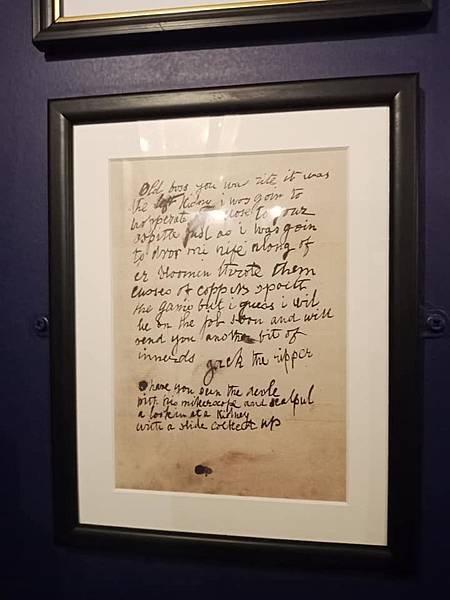 Old boss you was rite it was
the left kidny i was goin to
hoperate agin close to your
ospitle just as i was goin
to dror mi nife along of
er bloomin throte them
cusses of coppers spoilt
the game but i guess i wil
be on the job soon and will
send you another bit of
innerds
Jack the ripper
O have you seen the devle
with his mikerscope and scalpul
a lookin at a Kidney
with a slide cocked up